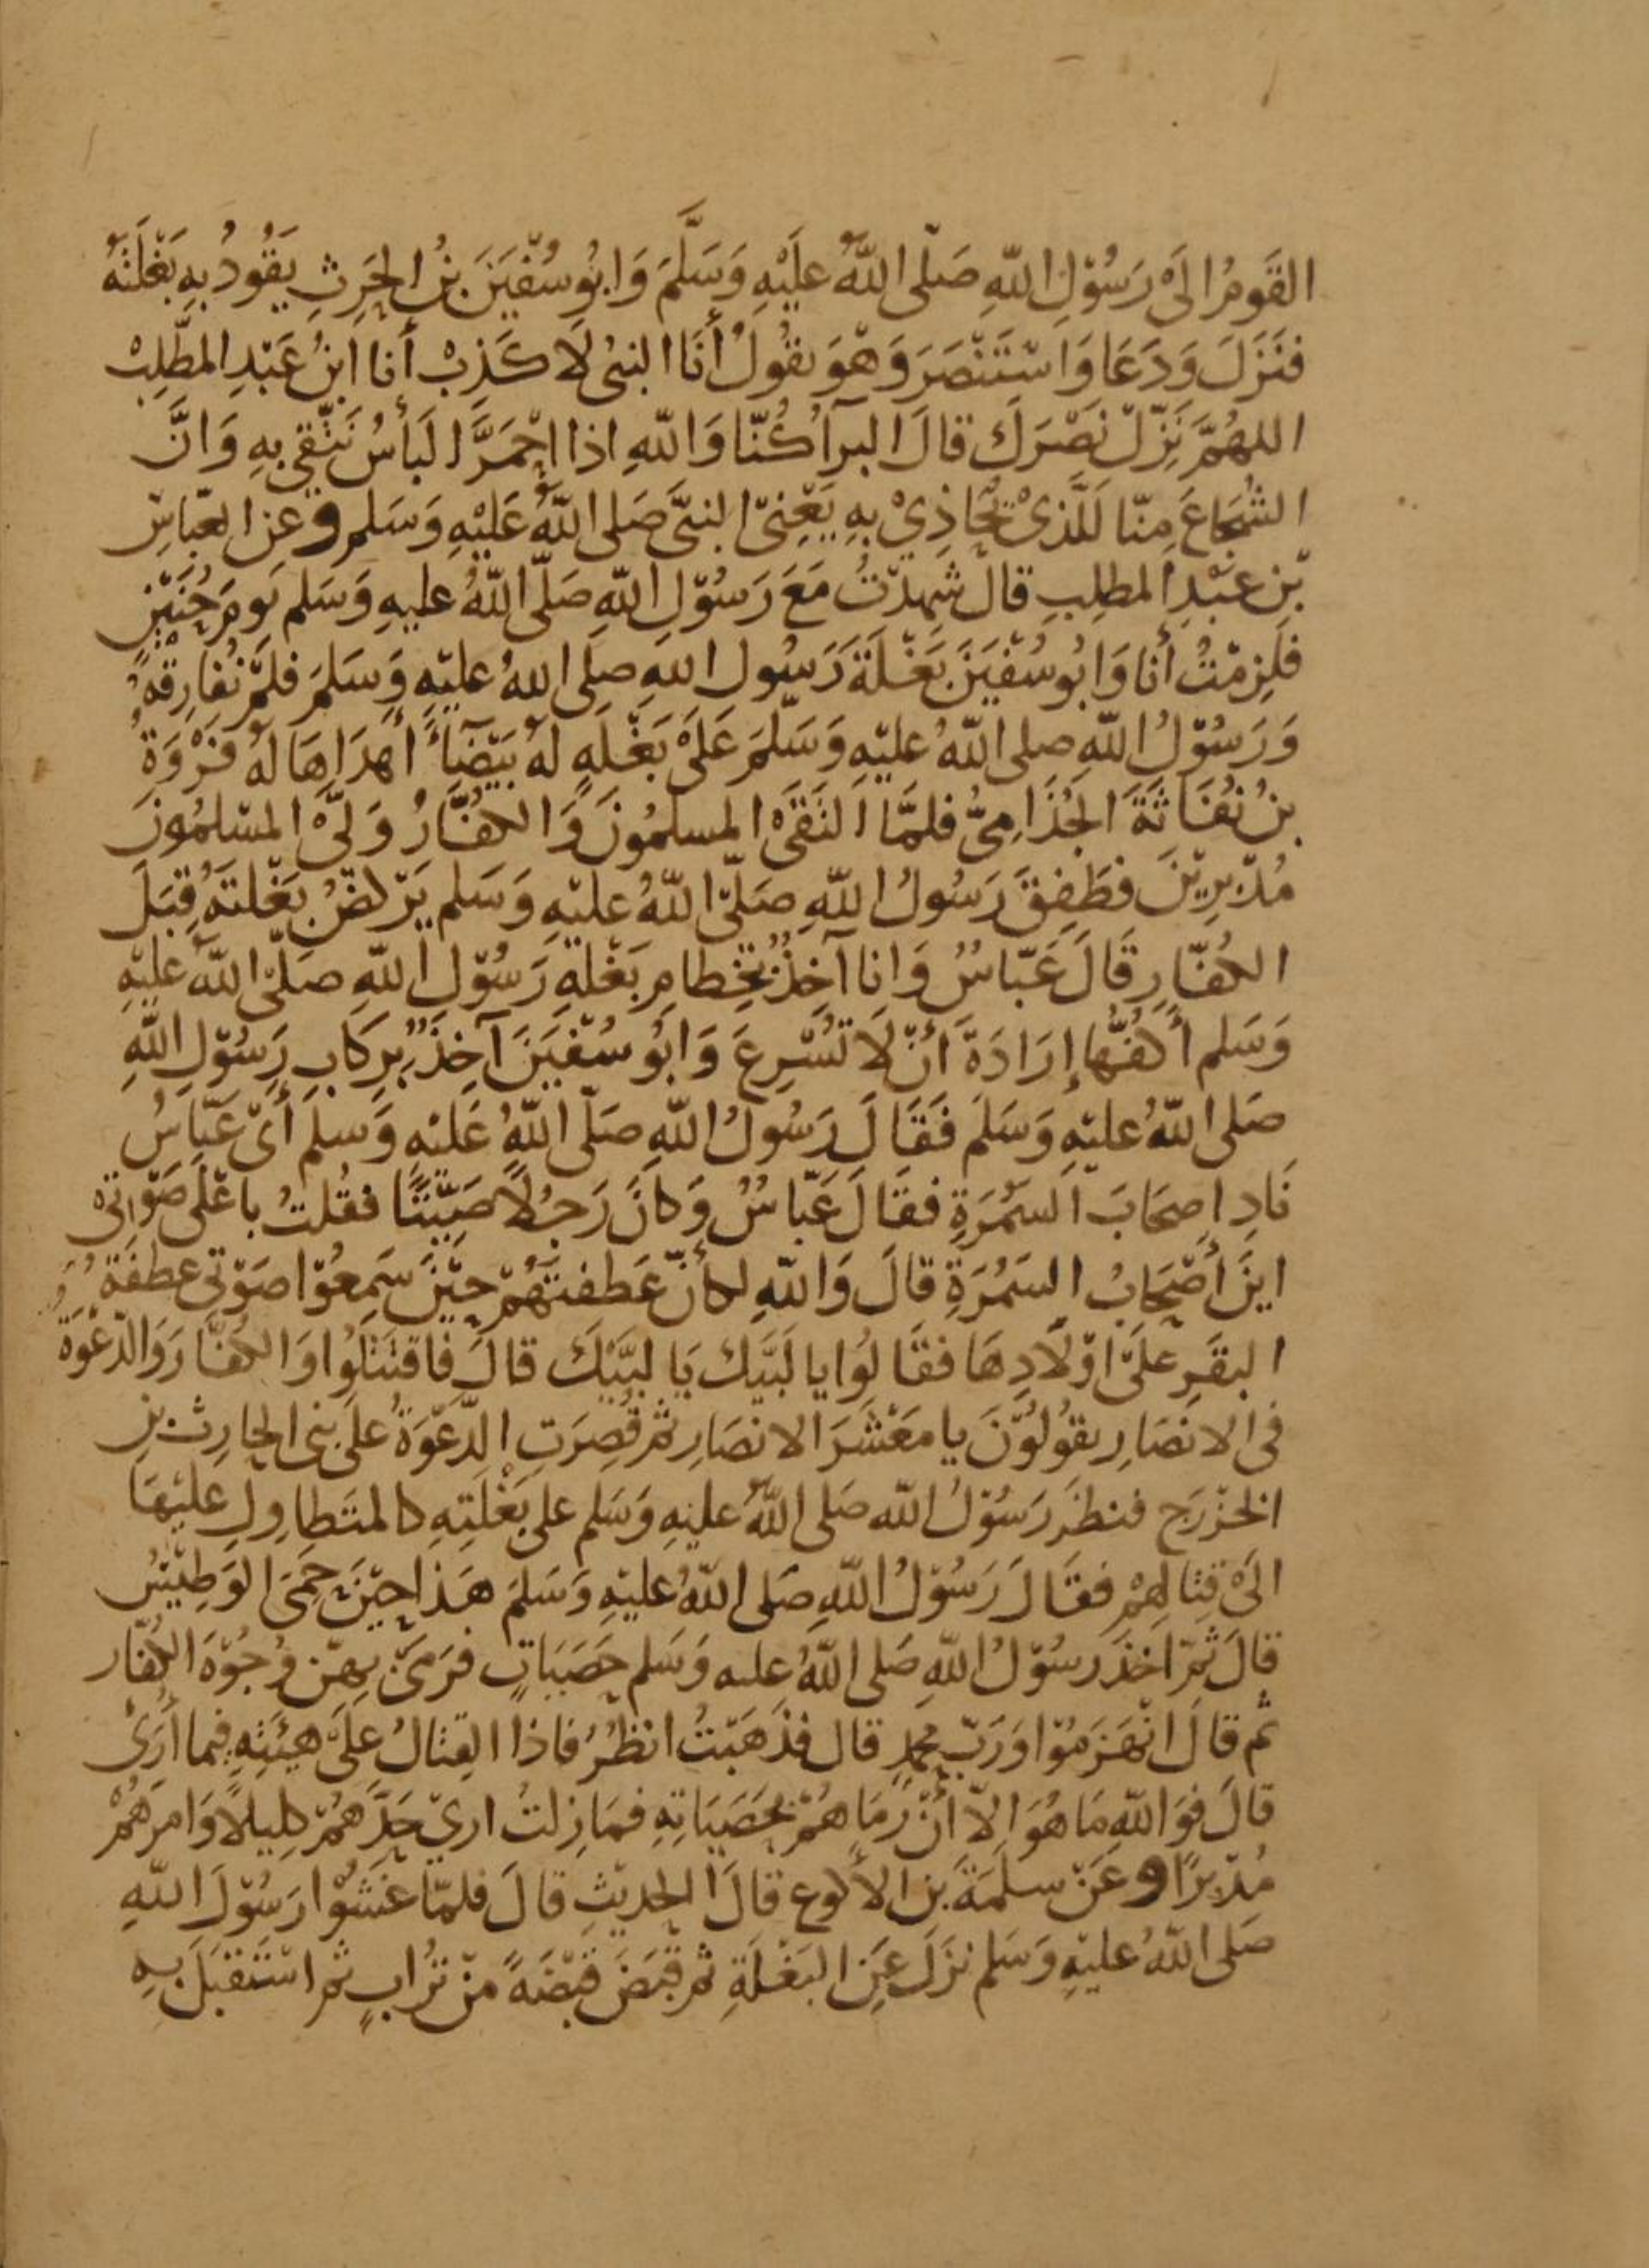 القَومُ الَىْ رَسُوْلِ اللّهِ صَلّى اللّهُ عَلَيْهِ وَسَلَّمَ وَابُو سُفْيَنَ بنُ الحَرِثِ يَقُودُ بِهِ بَغْلَتَهُ
فَنَزَلَ وَدَعَا وَاسْتَنْصَرَ وَهْوَ يقُولُ أنَا النبىُ لَا كَذِبْ أنا ابنُ عَبْدِ المطَّلِبْ
اللهُمَّ نَزِّلْ نَصْرَكَ قالَ البرآُ كُنّا وَاللّهِ اذا احْمَرَّ البَأسُ نَتَّقِي بِهِ وَانَّ
الشُجَاعَ مِنّا لَلَّذىْ يُحَاذِيْ بِهِ يَعْنِىْ النبىَّ صَلى اللّهُ عَلَيْهِ وَسَلم وعن العبّاسِ
بْنِ عبْدِ المطلِبِ قالَ شَهِدْتُ مَعَ رَسُوْلِ اللّهِ صَلّى اللّهُ عليهِ وَسَلم يَومَ حُنَيْنٍ
فلَزِمْتُ أنا وَابُو سُفْيَنَ بَغْلَةَ رَسُول اللهِ صلى اللهُ عليْهِ وَسَلمَ فلمْ نُفَارِقْهُ
وَرَسُوْلُ اللّهِ صلى اللّهُ عليْهِ وَسَلّمَ عَلَىْ بَغْلَةٍ لهُ بَيْضَآءَ أهدَاهَا لهُ فَرْوَةُ
بنُ نُفَاثَةَ الجُذَامِىُّ فلمَّا التَقَىْ المسلمُونَ وَالكفَّارُ وَلىَّ المسْلمُونَ
مُدْبِرِيْنَ فطَفِقَ رَسُولُ اللّهِ صَلىّ اللّهُ عليْهِ وَسَلم يَرْكضُ بَغْلتَهُ قِبَلَ
الكُفّارِ قَالَ عَبّاسٌ وَانا آخِذٌ بخِطامِ بَغْلةِ رَسُوْلِ اللّهِ صَلّى اللّهُ عليْهِ
وَسَلم أكفُّها إرَادَةَ أنْ لَا تُسْرِعَ وَابُو سُفْيَنَ آخِذٌ بِرِكَابِ رَسُوْلِ اللّهِ
صَلى اللّهُ عليْهِ وَسَلمَ فَقَالَ رَسُولُ اللّهِ صَلّى اللّهُ عَليْهِ وَسلمَ أىْ عَبّاسُ
نَادِ اصحَابَ السَمُرَةِ فقَالَ عَبّاسٌ وَكانَ رَجُلًا صَيِّتًا فقُلتُ باعْلَى صَوْتىْ
اينَ أصْحَابُ السَمُرَةِ قالَ وَاللّهِ لكأنّ عَطفتَهُمْ حيْنَ سَمِعُوْا صَوْتى عطفَةُ
البقَرِ علىَ اوْلَادِهَا فقَالُوا يا لَبَيَّك يَا لبَيَّكَ قالَ فاقتَتَلُوْا وَالكُفّارَ وَالدّعْوَةُ
فى الانصَارِ يقُولُوْنَ يا مَعْشَرَ الانصَارِ ثمَّ قُصِرَتِ الدَّعْوَةُ على بنى الحارِث بنِ
الخزْرَج فنظَرَ رَسُوْلُ اللّه صَلى اللّهُ عليهِ وَسَلم على بَغْلَتِهِ كالمتَطاوِلِ عليْهَا
الَىْ قِتالِهِمْ فقَالَ رَسُوْلُ اللّهِ صَلى اللّهُ عليْهِ وَسَلمَ هَذا حيْنَ حَمَىَ الوَطِيْسُ
قالَ ثمّ اخَذَ رَسُوْلُ اللّهِ صَلى اللّهُ عليه وَسَلم حَصَيَاتٍ فرَمَىَ بِهنّ وُجُوْهَ الكُفّار
ثم قالَ انْهَزَمُوْا وَرَبّ محمدٍ قال فذَهَبْتُ انظُرُ فاذا القِتالُ علىَ هيْئَتِهِ فيما أرَىْ
قالَ فوَ اللّهِ مَا هُوَ الّا أنْ رَمَاهُمْ بحَصَيَاتِهِ فمَا زِلتُ اريْ حَدَّهُمْ كلِيلًا وَامرَهُمْ
مُدْبرًا وعَنْ سلَمَةَ بن الأكوعِ قالَ الحديْثِ قالَ فلمّا غَشُوْا رَسُوْلَ اللّهِ
صَلى اللّهُ عليْهِ وَسَلم نزَلَ عَنِ البَغْلَةِ ثم قبَضَ قبْضَةً منْ تُرابٍ ثم اسْتَقْبَلَ بهِ